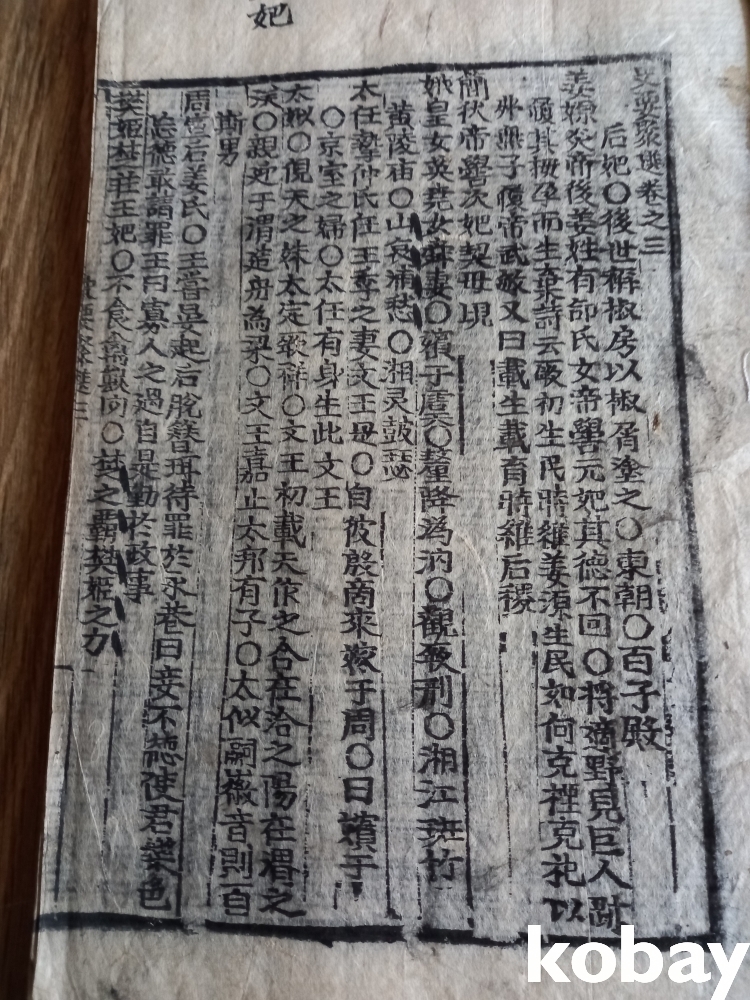 妃
史要聚選卷之三
后妃〇後世稱椒房以椒屑塗之〇東朝〇百子殿
姜嫄炎帝後姜姓有邰氏女帝嚳元妃其德不回〇將適野見巨人
履其拇孕而生棄詩云厥初生民時維姜源生民如何克禋克祀以
弗無子履帝武敏又曰載生載育時維后稷
簡狄帝嚳次妃契母
娥皇女英堯女舜妻〇嬪于虞〇釐降溈汭〇觀厥刑〇湘江斑竹
黄陵庙〇山哀浦愁〇湘灵鼓瑟
太任摯仲氏任王季之妻文王母〇自彼殷商來嫁于周〇曰嬪于
〇京室之婦〇太任有身生此文王
太姒〇俔天之妹太定厥祥〇文王初載天作之合在洽之陽在渭之
涘〇親迎于渭造舟為梁〇文王嘉止太邦有子〇太似嗣徽音則百
斯男
周宣后姜氏〇王嘗晏起后脫簪珥待罪於永巷曰妾不德使君樂色
忘德敢請罪王曰寡人之過自是勤於政事
樊姬楚莊王妃〇不食禽獸肉〇楚之霸樊姬之力
kobay